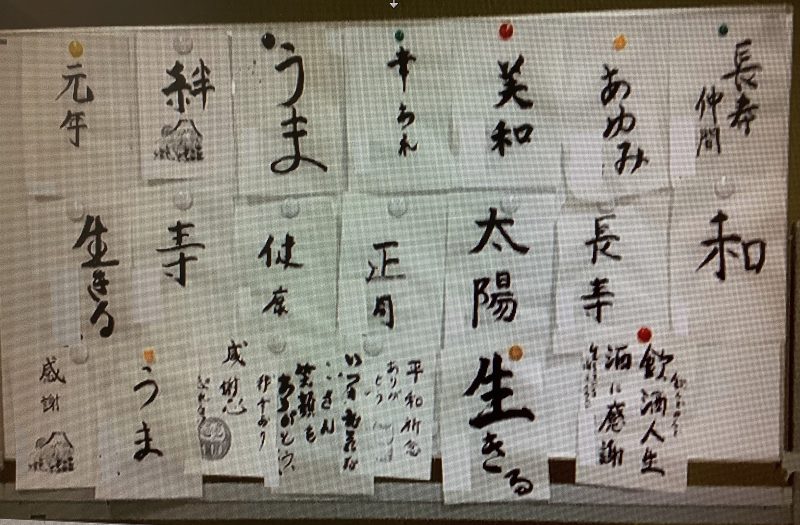 長寿
仲間
あゆみ
美和
幸あれ
うま
絆
元年
和
長寿
太陽
正月
健康
寿
生きる
飲酒人生
酒に感謝
生きる
平和祈念
ありが
とう
いつも
笑顔を
ありがとう
感謝
うま
感謝